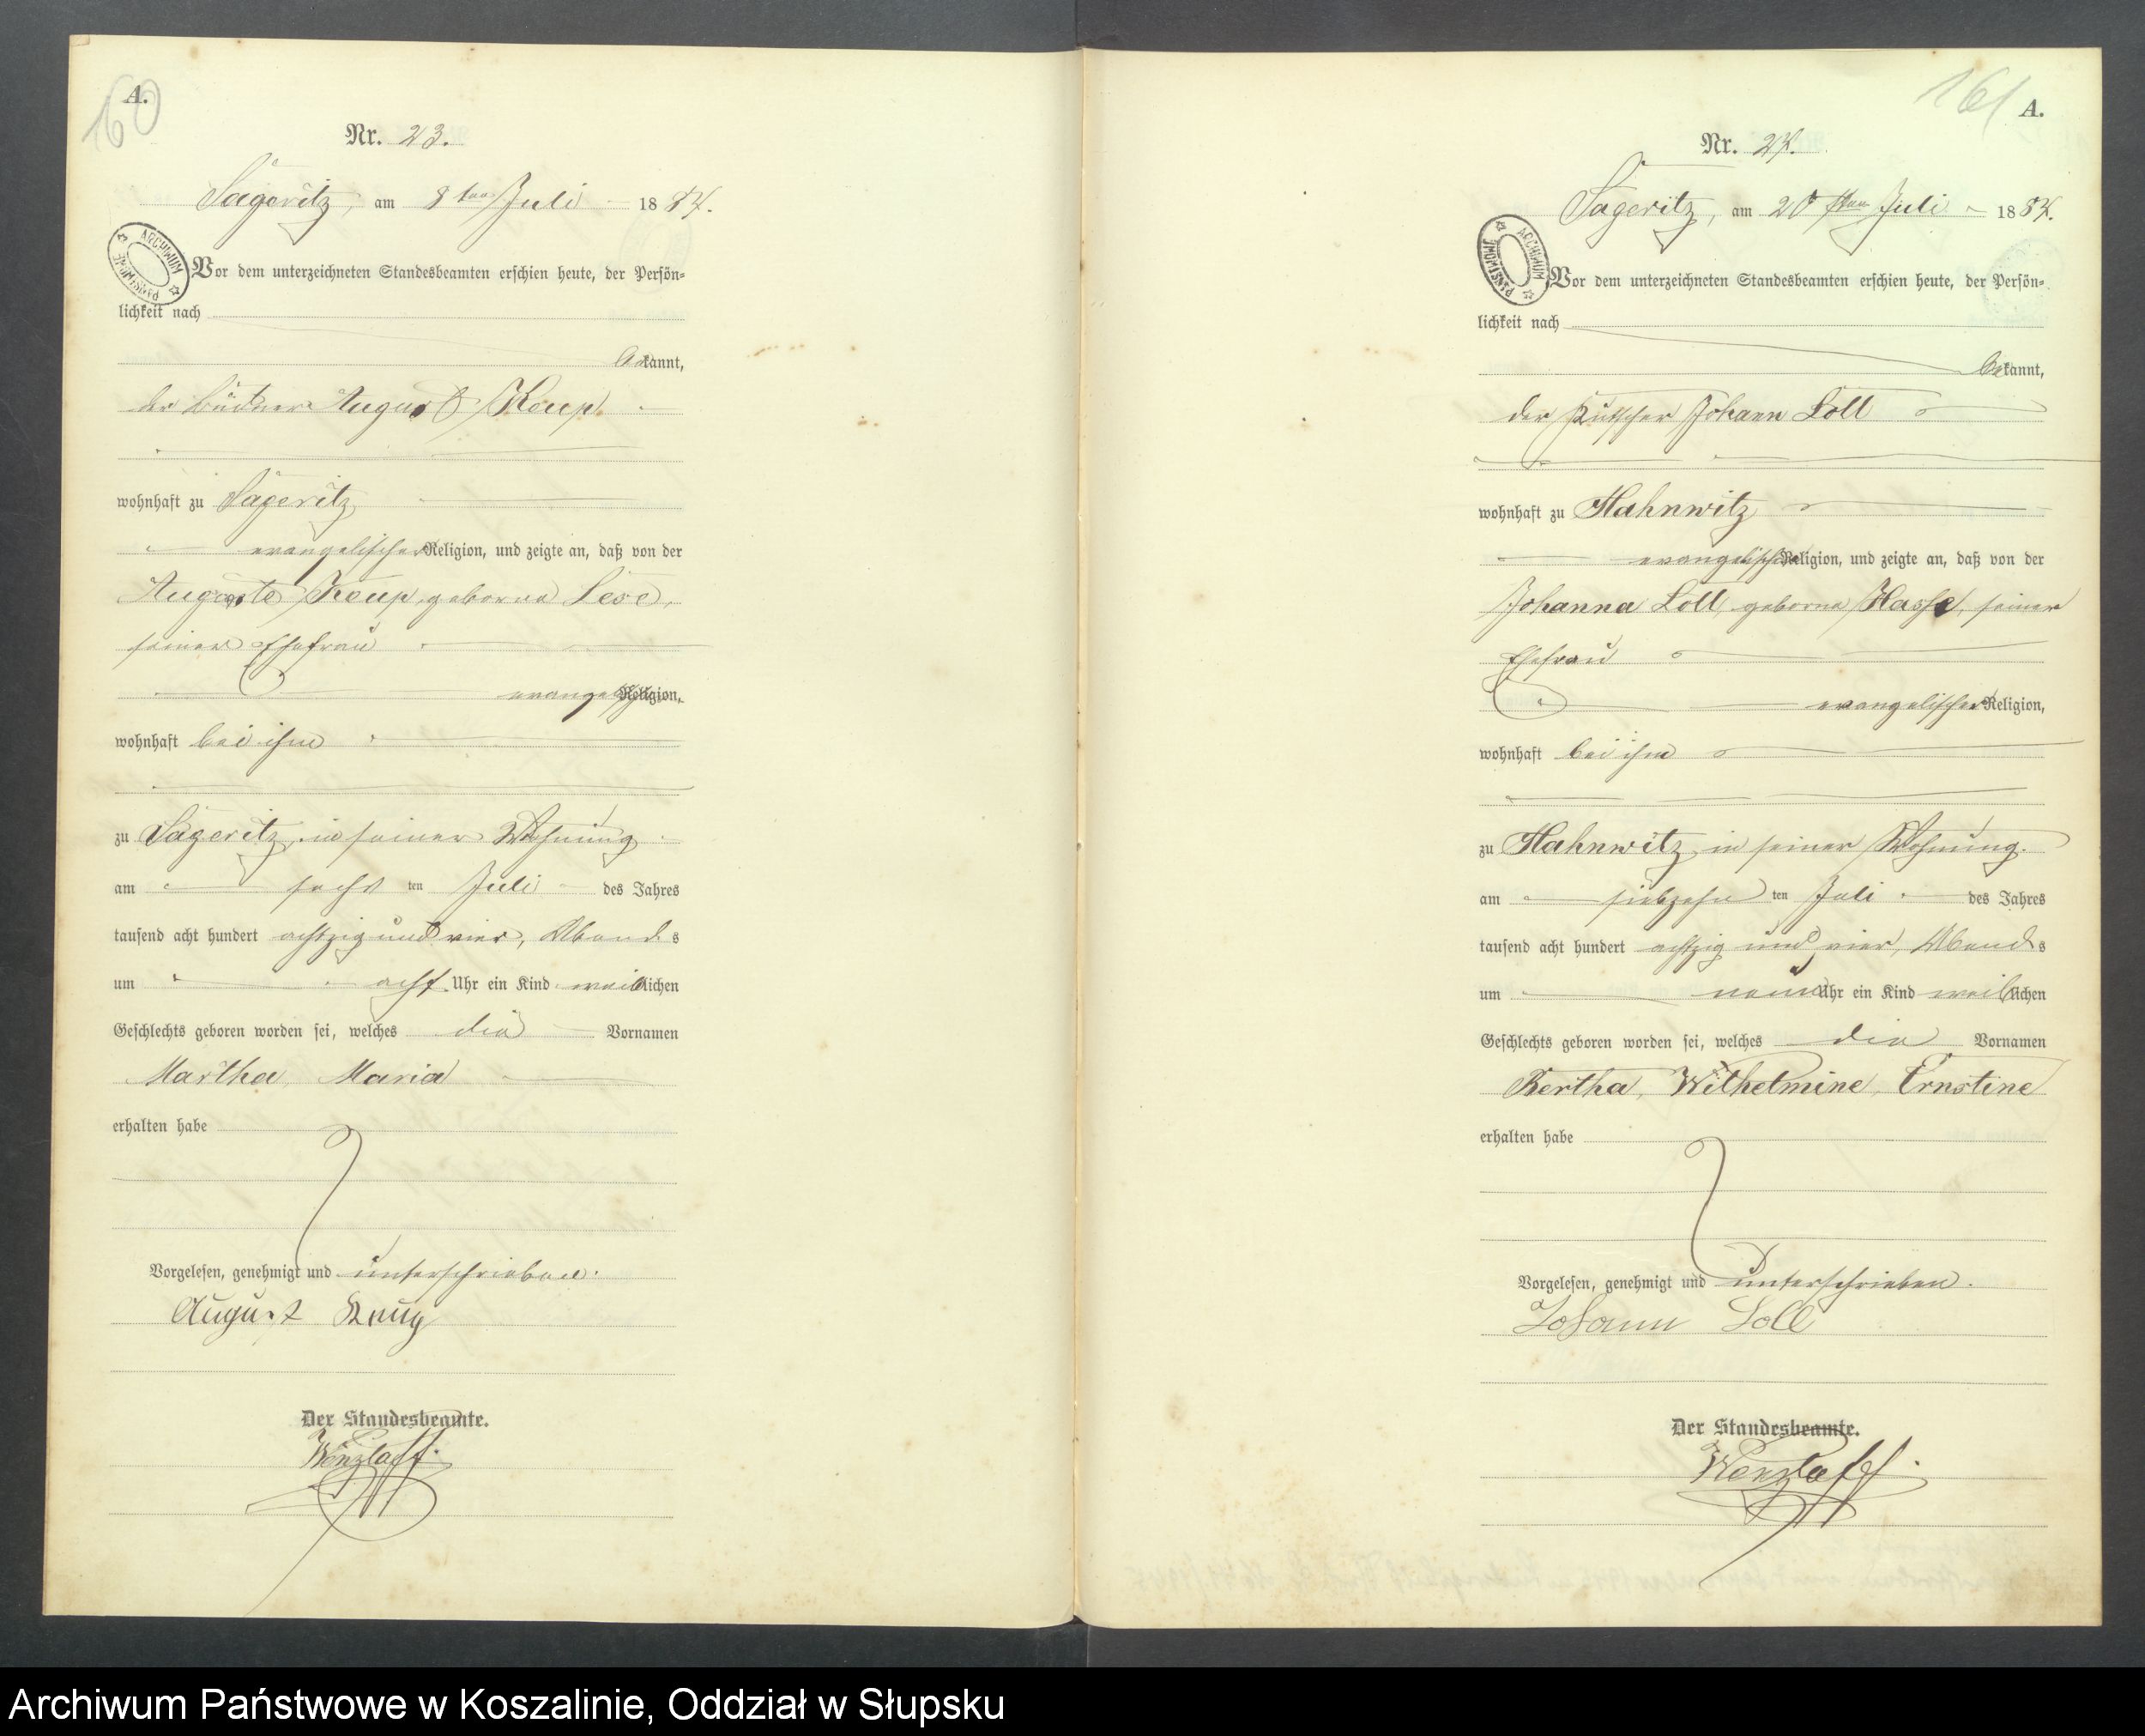 160
A.
Nr. 23.
Sageritz, am 8ten Juli 1884.
ARCHIWUM PAŃSTWOWE
Vor dem unterzeichneten Standesbeamten erschien heute, der Persön=
lichkeit nach
bekannt,
der Büdner August
wohnhaft zu Sageritz
evangelischer Religion, und zeigte an, daß von der
Auguste geborne
seiner Ehefrau
evangelischer Religion,
wohnhaft bei ihm
zu Sageritz, in seiner Wohnung
am sechsten Juli des Jahres
tausend acht hundert achtzig und vier, Abends
um acht Uhr ein Kind weiblichen
Geschlechts geboren worden sei, welches die Vornamen
Martha, Maria
erhalten habe
Vorgelesen, genehmigt und unterschrieben.
August
Der Standesbeamte.
Wenzlaff.
161
A.
Nr. 24.
Sageritz, am 20sten Juli 1884.
ARCHIWUM PAŃSTWOWE
Vor dem unterzeichneten Standesbeamten erschien heute, der Persön=
lichkeit nach
bekannt,
der Kutscher Johann Loll
wohnhaft zu Hahnwitz
evangelischer Religion, und zeigte an, daß von der
Johanna Loll, geborne Hasse, seiner
Ehefrau
evangelischer Religion,
wohnhaft bei ihm
zu Hahnwitz, in seiner Wohnung.
am siebzehnten Juli des Jahres
tausend acht hundert achtzig und vier, Abends
um neun Uhr ein Kind weiblichen
Geschlechts geboren worden sei, welches die Vornamen
Bertha, Wilhelmine, Ernstine
erhalten habe
Vorgelesen, genehmigt und unterschrieben.
Johann Loll
Der Standesbeamte.
Wenzlaff.
Archiwum Państwowe w Koszalinie, Oddział w Słupsku